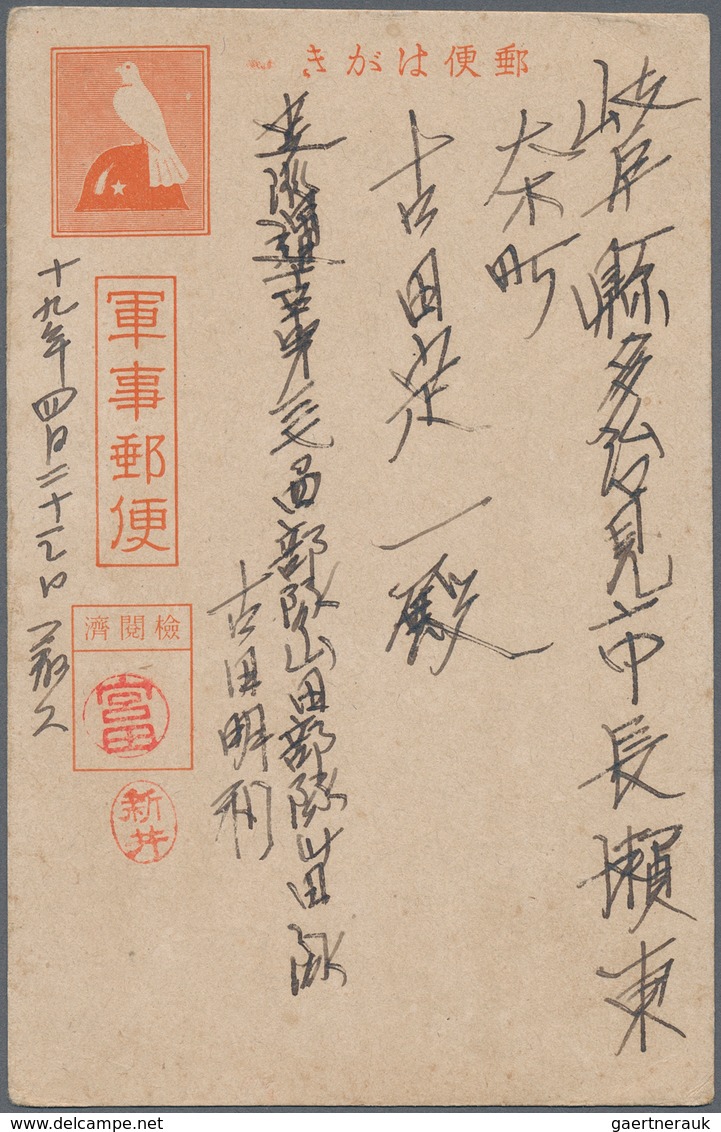 郵便はがき
岐阜縣多治見市長瀬東
栄町
古田定一殿
派遣
部隊山田部隊山田隊
古田明利
十九年四月二十三日
軍事郵便
檢閲濟
宮田
新井
gaertnerauk